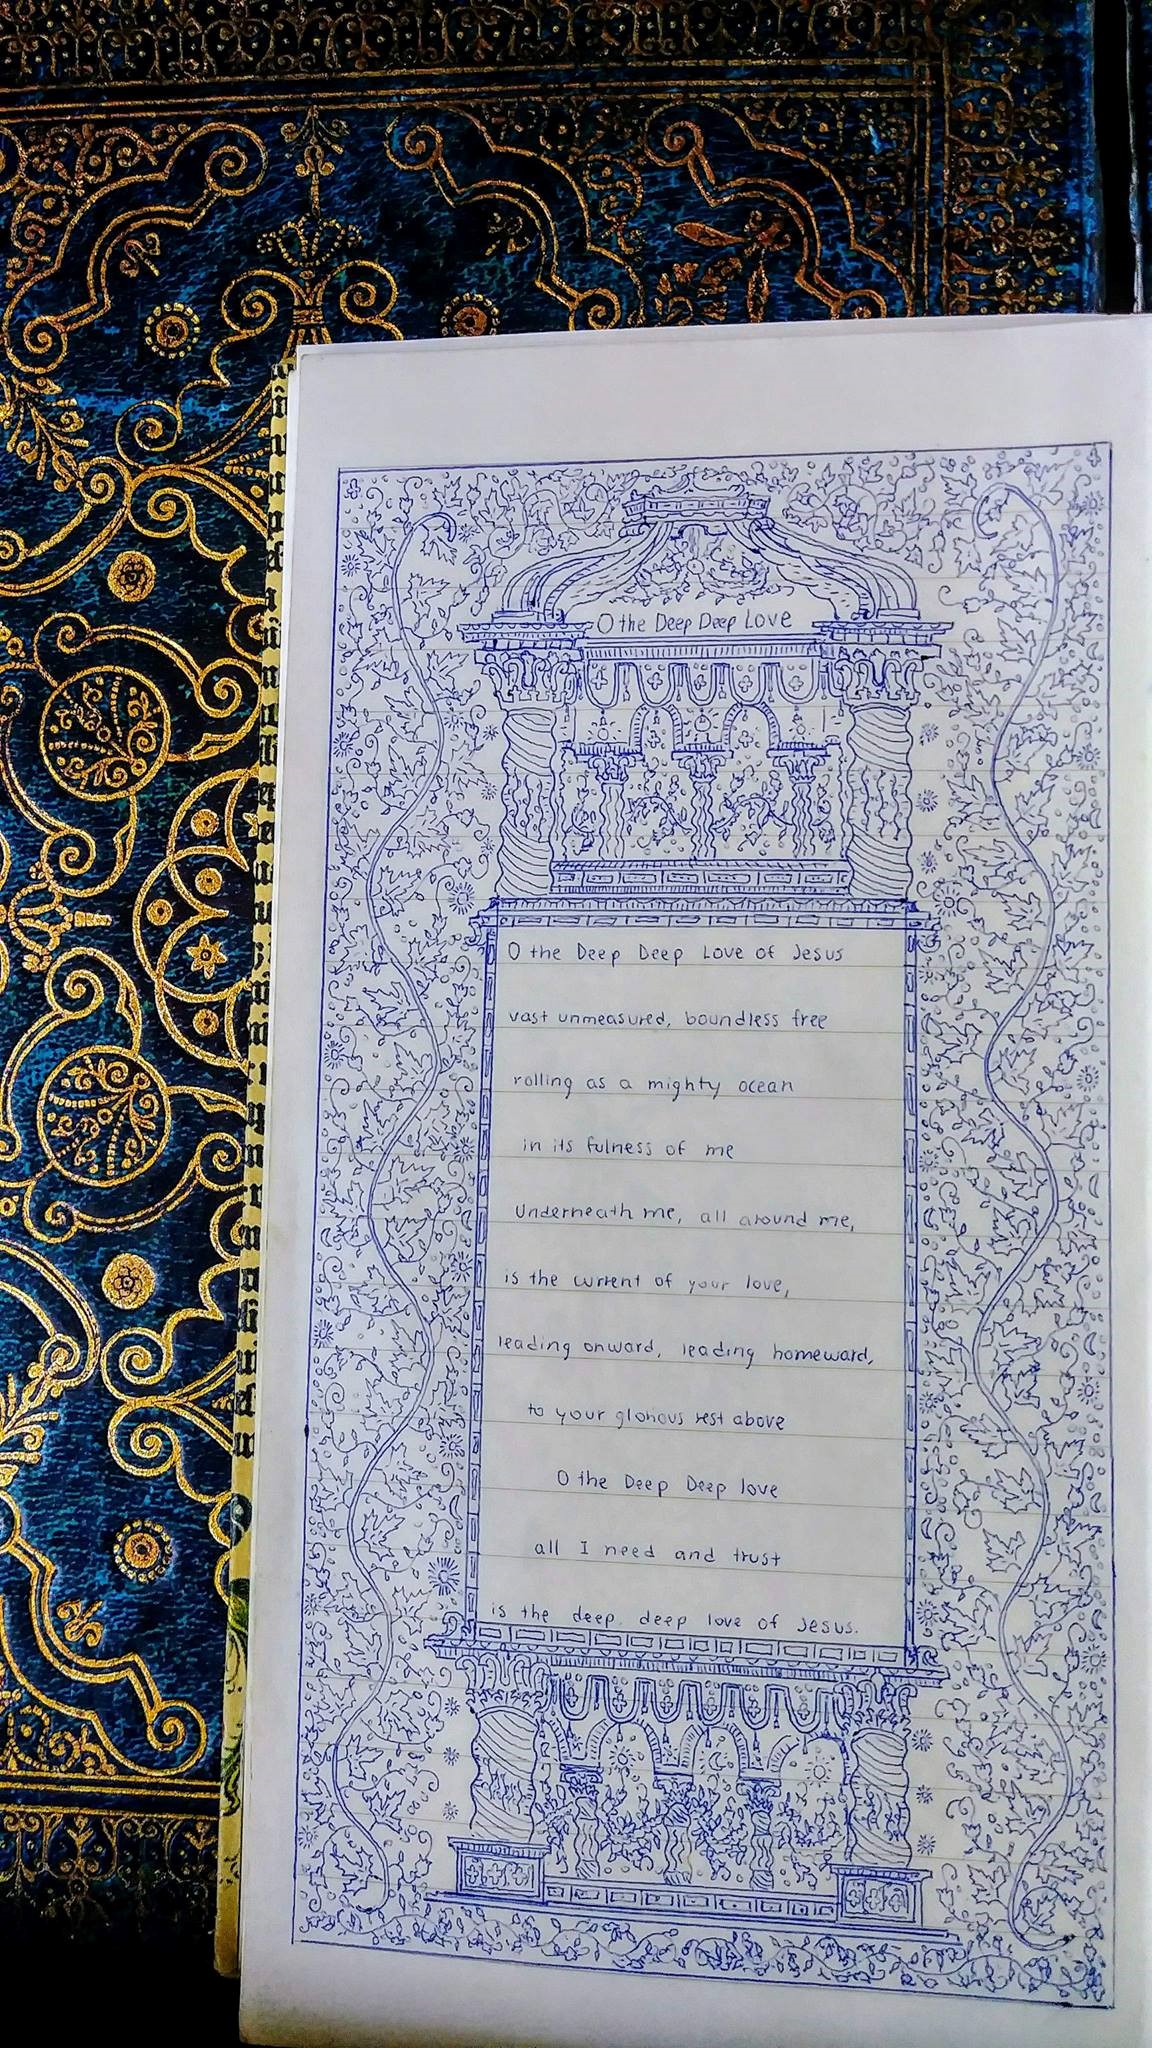 O the Deep Deep Love
O the Deep Deep Love of Jesus
vast unmeasured, boundless free
rolling as a mighty ocean
in its fulness of me
Underneath me, all around me,
is the current of your love,
leading onward, leading homeward,
to your glorious rest above
O the Deep Deep love
all I need and trust
is the deep deep love of Jesus.